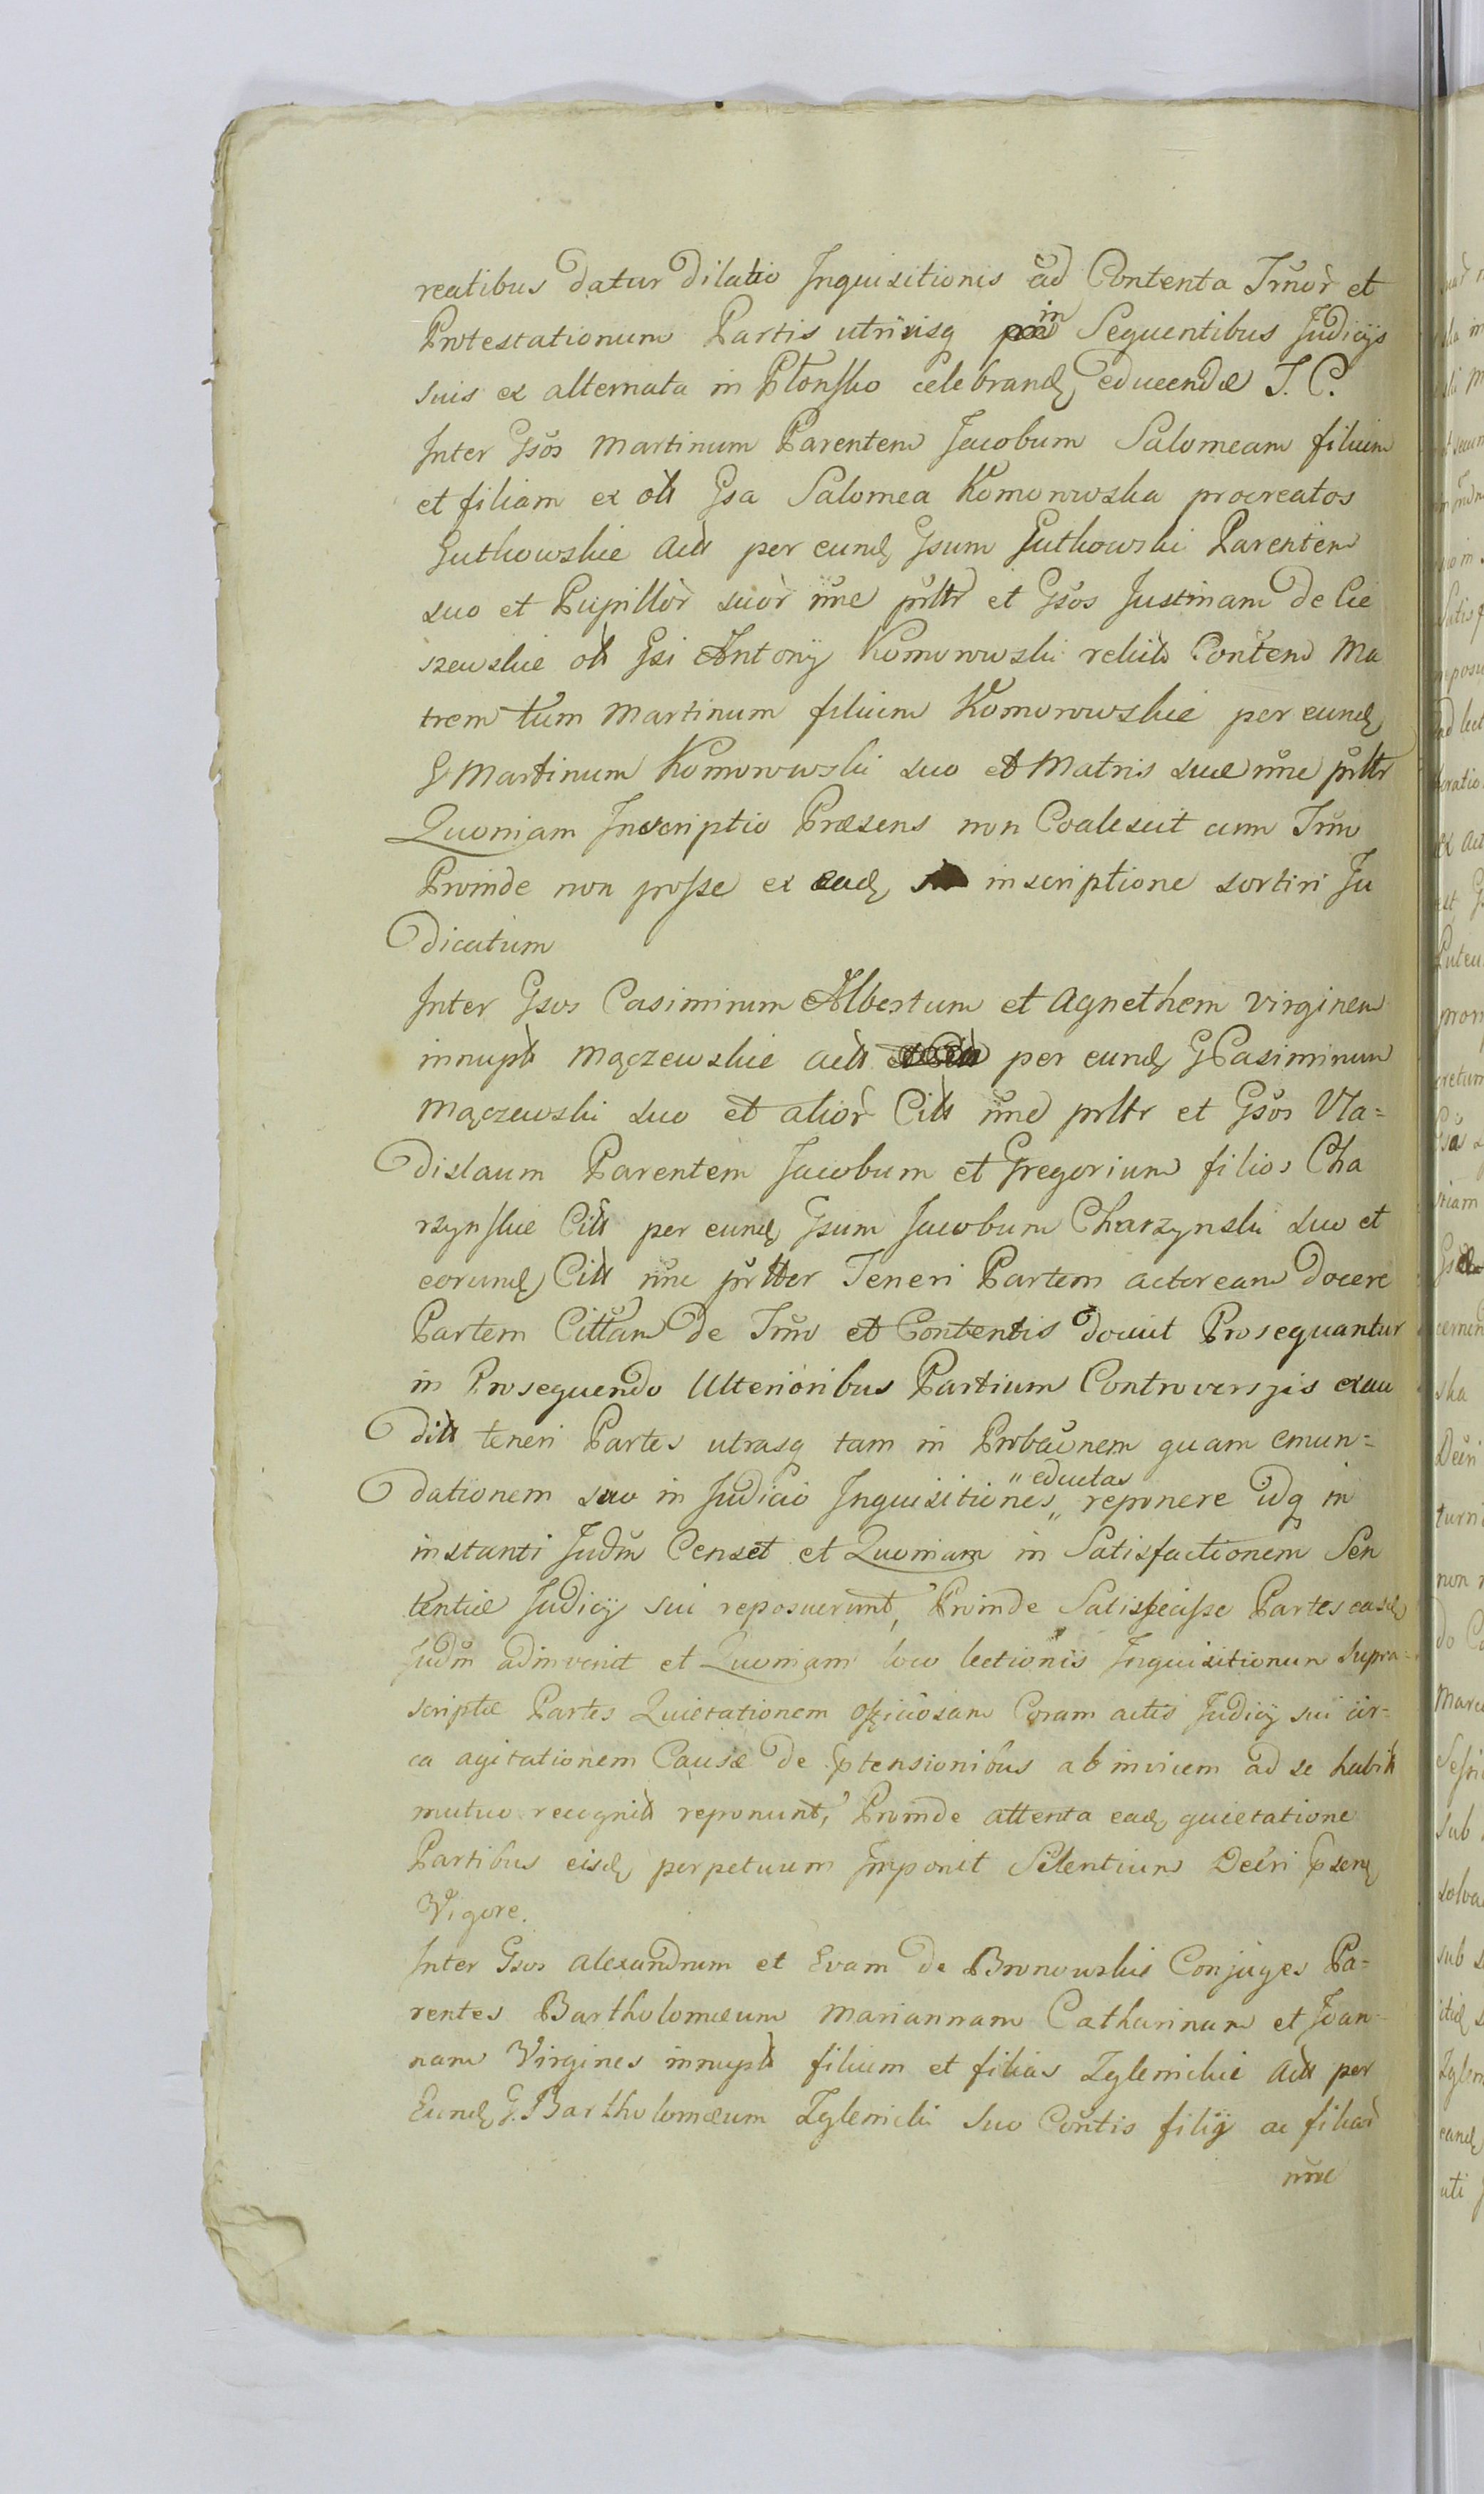 reatibus datur Dilatio Inquisitionis ad Contenta Trmor et
Protestationum Partis utriusq in Sequentibus Judicijs
suis ex alternata in Płońsko celebrand educendæ T. C.
Inter Gsos Martinum Parentem Jacobum Salomeam filium
et filiam ex olt Gsa Salomea Komorowska procreatos
Gutkowskie Actt per eund Gsum Gutkowski Parentem
suo et Pupillor suor nne prltr et Gsos Justinam de Cie
szewskie olt Gsi Antonij Komorowski relict Conten Ma
trem tum Martinum filium Komorowskie per eund
G Martinum Komorowski suo et Matris suæ nne prltr
Quoniam Inscriptio Præsens non Coalescit cum Trmo
Proinde non posse ex ead inscriptione sortiri Ju
dicatum
Inter Gsos Casimirum Albertum et Agnethem virginem
innupt Mączewskie Actt per eund G Casimirum
Mączewski suo et alior Citt nne prltr et Gsos Vla=
dislaum Parentem Jacobum et Gregorium filios Cha
rzynskie Citt per eund Gsum Jacobum Charzynski suo et
eorund Citt nne prltter Teneri Partem actoream docere
Partem Cittam de Trmo et Contentis docuit Prosequantur
in Prosequendo Ulterioribus Partium Controversijs exau
ditt teneri Partes utrasq tam in Probaunem quam emun=
dationem suo in Judicio Inquisitiones „ eductas reponere idq in
instanti Judm Censet et Quoniam in Satisfactionem Sen
tentiæ Judicij sui reposuerunt, Proinde Satisfecisse Partes easd
Judm adinvenit et Quoniam loco lectionis Inquisitionum supra=
scriptæ Partes Quietationem officiosam Coram actis Judicij sui cir=
ca agitationem Causæ de ptensionibus ab invicem ad se habitt
mutuo recognitt reponunt, Proinde attenta ead quietatione
Partibus eisd perpetuum Imponit Silentium Decri psent
Vigore.
Inter Gsos Alexandrum et Evam de Bronowskie Conjuges Pa=
rentes Bartholomæum Mariannam Catharinam et Joan=
nam Virgines innupt filium et filias Zglenickie Actt per
Eund G. Bartholomæum Zglenicki suo Contis filij ac filiar
nne